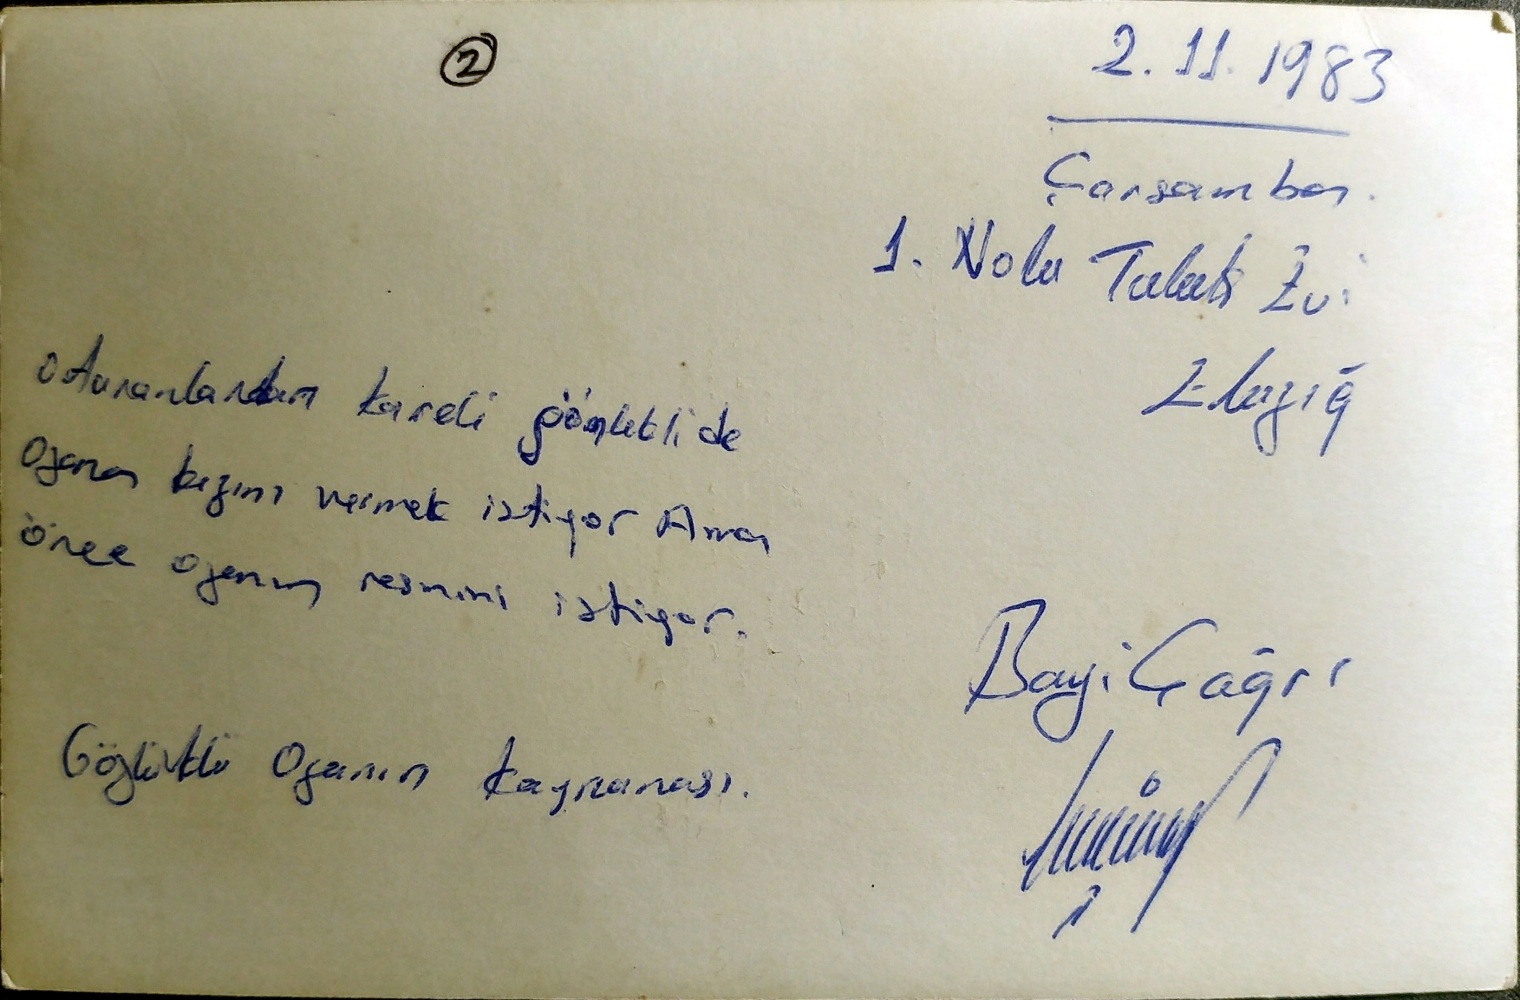 2
2.11.1983
Çarsamba.
1. Nolu Tutuk Evi
Elazığ
Oturanlardan kareli gömlekli de
Ozana kızını vermek istiyor Ama
önce ozanın resmini istiyor.
Gözlüklü Ozanın kaynanası.
Bayi Çağrı